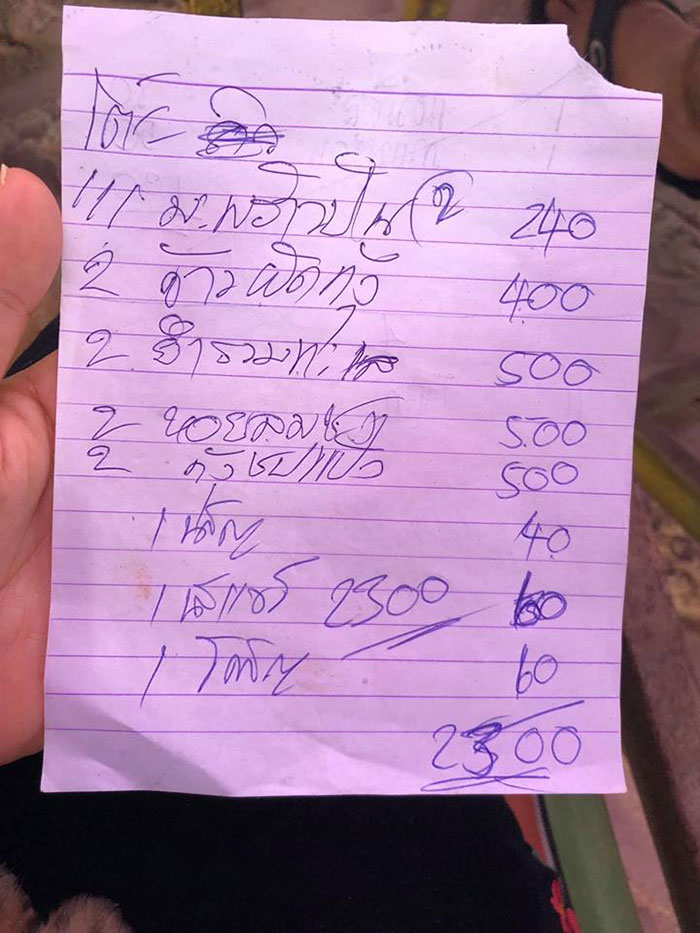 โต๊ะ
III ม.พร้าวปั่น (2 240
2 ข้าวผัดกุ้ง 400
2 ยำรวมทะเล 500
2 หอยลมช้อง 500
2 กุ้งชุปแป้ง 500
1 น้ำ 40
1 2300 60
1 โค้ก 60
2300